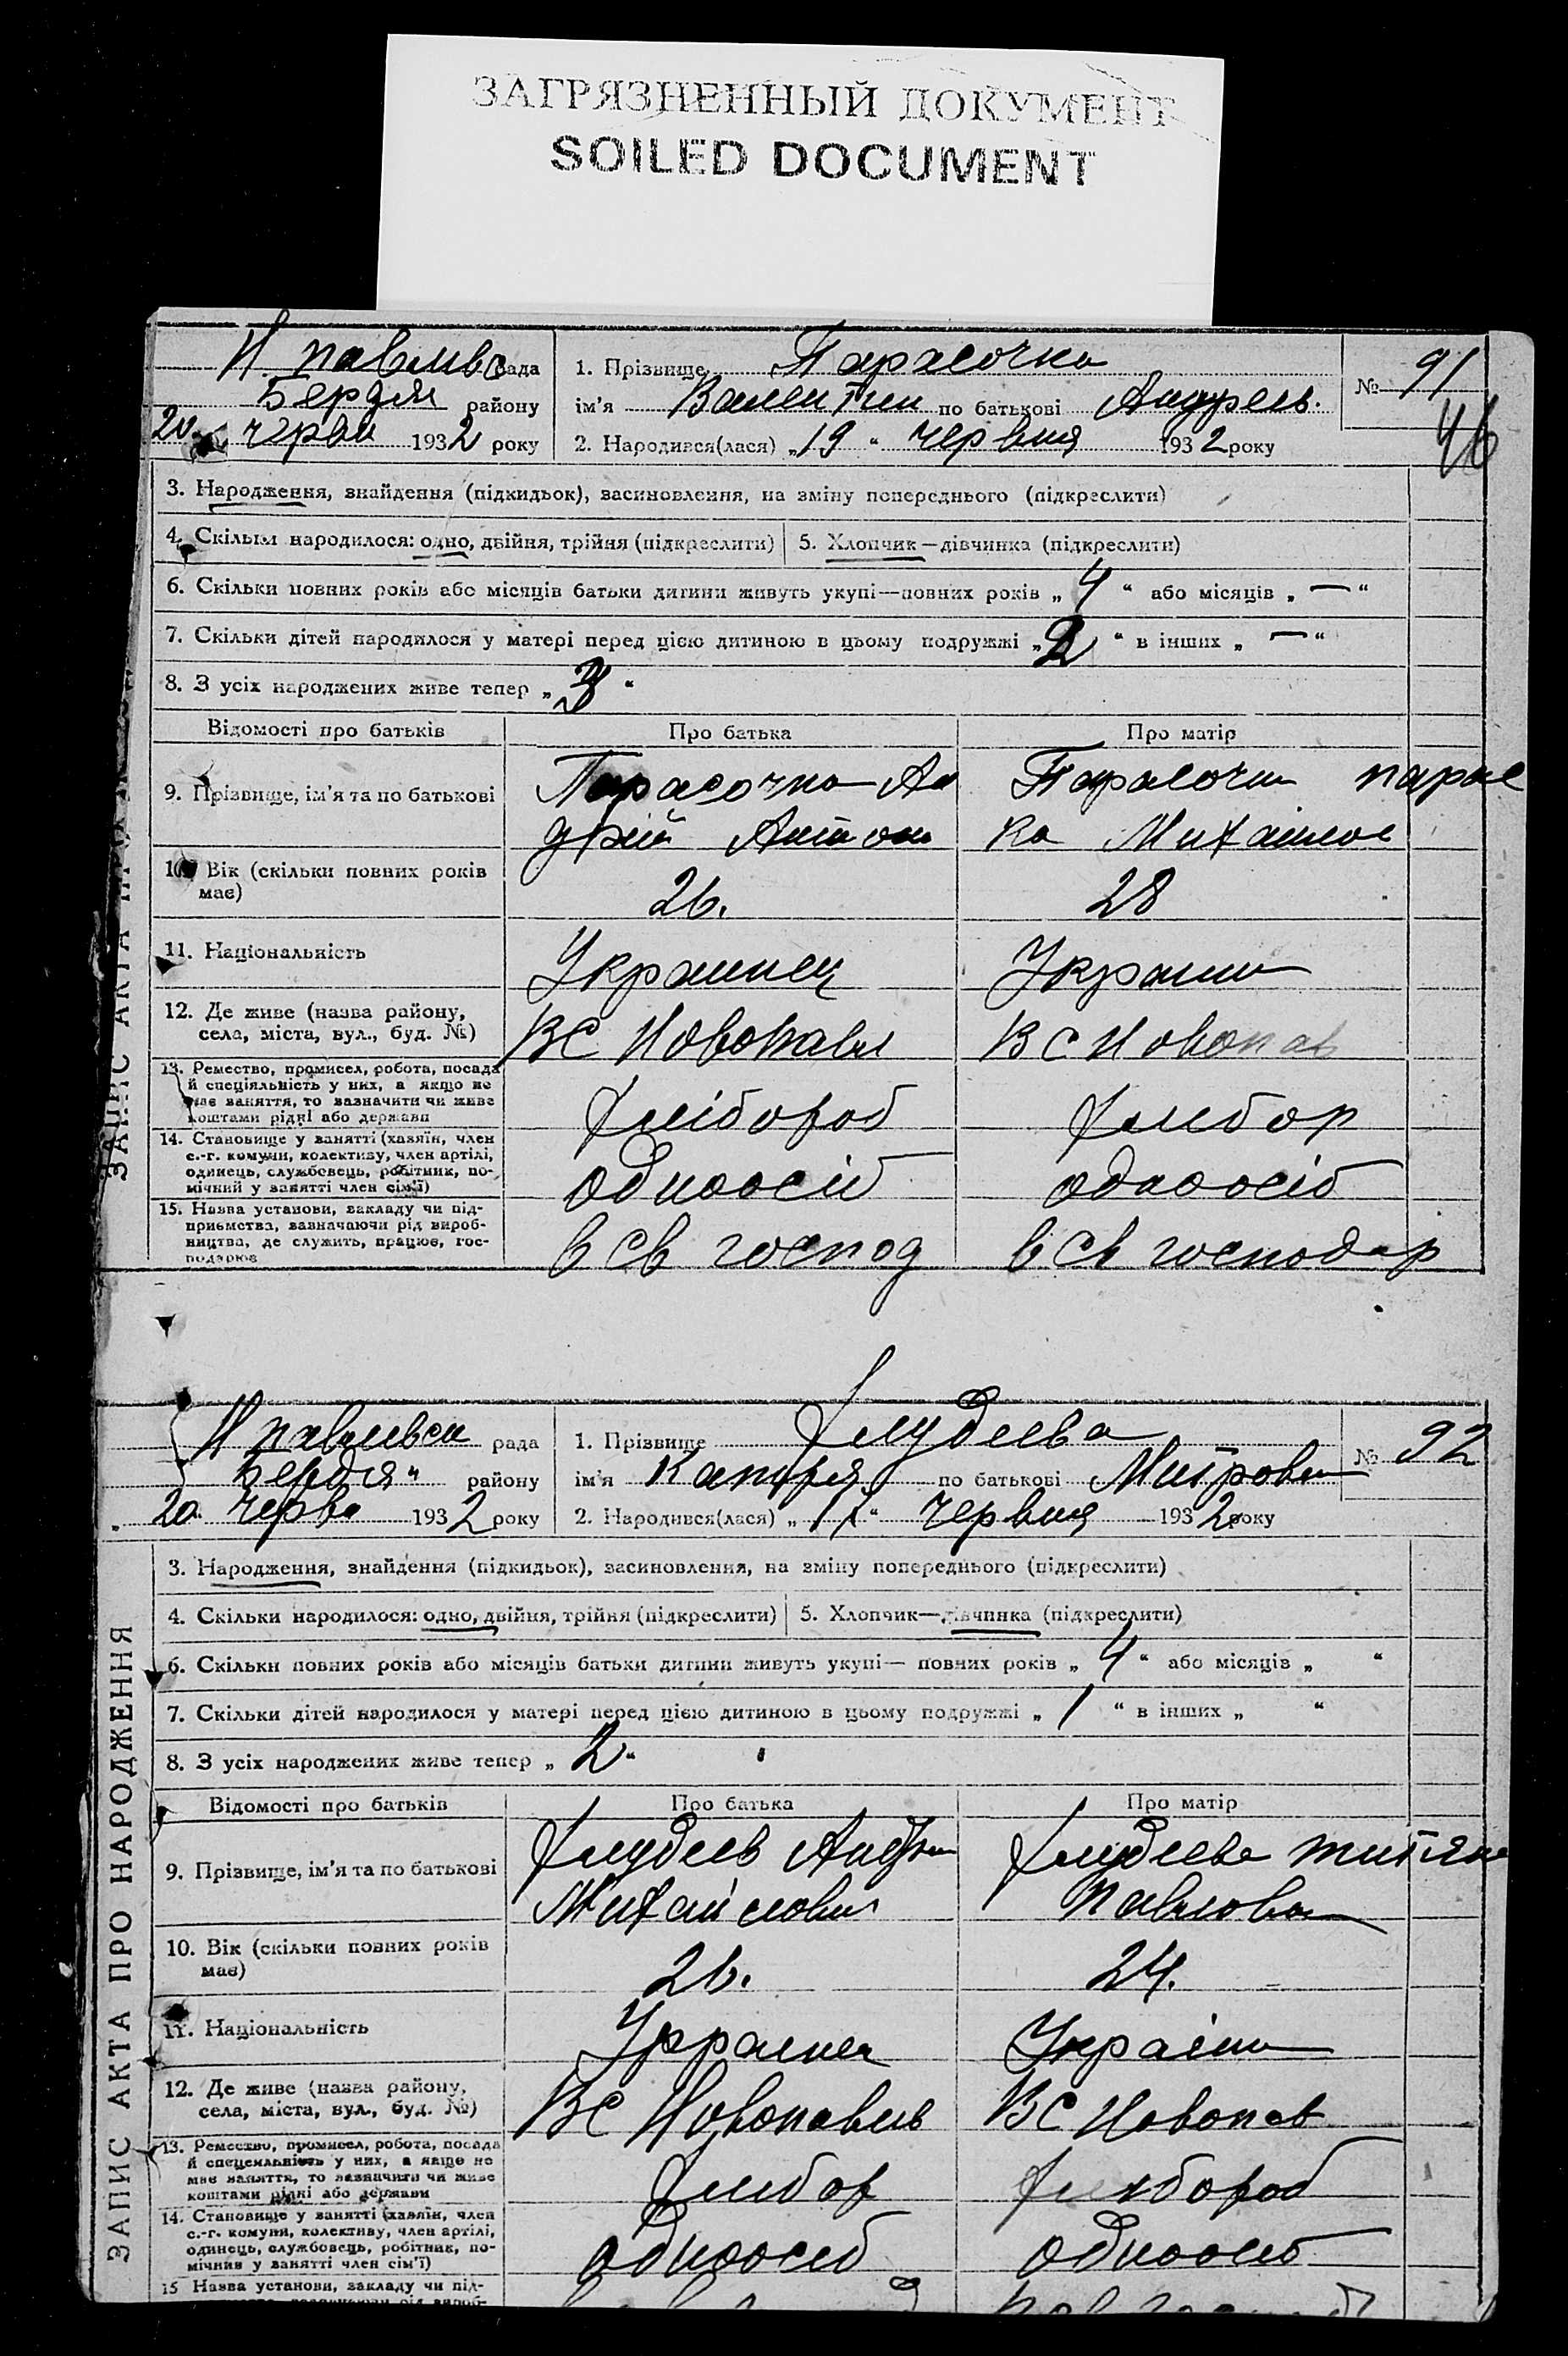 ЗАГРЯЗНЕННЫЙ ДОКУМЕНТ
SOILED DOCUMENT
Н павливс рада
Бердян району
20 черви 1932 року
1. Прізвище Тарасочка
ім'я Валентин по батькові Андреев.
2. Народився(лася) „19“ червня 1932 року
№ 91
46
3. Народження, знайдення (підкидьок), засиновлення, на зміну попереднього (підкреслити)
4. Скільки народилося: одно, двійня, трійня (підкреслити) 5. Хлопчик—дівчинка (підкреслити)
6. Скільки повних років або місяців батьки дитини живуть укупі—повних років „4“ або місяців „—“
7. Скільки дітей народилося у матері перед цією дитиною в цьому подружжі „2“ в інших „—“
8. З усіх народжених живе тепер „3“
Відомості про батьків Про батька Про матір
9. Прізвище, ім'я та по батькові Тарасочка Ан Тарасочка парас
дрій Антон ка Михайлов
10. Вік (скільки повних років
має) 26. 28
11. Національність Украинец Украин
12. Де живе (назва району,
села, міста, вул., буд. №) ВС Новопавл ВС Новопав
13. Ремество, промисел, робота, посада
й спеціяльність у них, а якщо не
має заняття, то зазначити чи живе
коштами рідні або держави
хлібороб хлибор
14. Становище у занятті (хазяїн, член
с.-г. комуни, колективу, член артілі,
одинець, службовець, робітник, по-
мічний у занятті член сім'ї)
одноосіб одноосіб
15. Назва установи, закладу чи під-
приємства, зазначаючи рід вироб-
ництва, де служить, працює, гос-
подарює
в св господ в св господар
ЗАПИС АКТА
Н павливск рада
Бердян району
20 черв 1932 року
1. Прізвище
ім'я по батькові
2. Народився(лася) „17“ червня 1932 року
№ 92
3. Народження, знайдення (підкидьок), засиновлення, на зміну попереднього (підкреслити)
4. Скільки народилося: одно, двійня, трійня (підкреслити) 5. Хлопчик—дівчинка (підкреслити)
6. Скільки повних років або місяців батьки дитини живуть укупі— повних років „4“ або місяців „ “
7. Скільки дітей народилося у матері перед цією дитиною в цьому подружжі „1“ в інших „ “
8. З усіх народжених живе тепер „2“
Відомості про батьків Про батька Про матір
9. Прізвище, ім'я та по батькові
Михайлович Павлова
10. Вік (скільки повних років
має) 26. 24.
11. Національність Україн
12. Де живе (назва району,
села, міста, вул., буд. №) ВС Новопавлв ВС Новопав
13. Ремество, промисел, робота, посада
й спеціяльність у них, а якщо не
має заняття, то зазначити чи живе
коштами рідні або держави
хлибор хлибороб
14. Становище у занятті (хазяїн, член
с.-г. комуни, колективу, член артілі,
одинець, службовець, робітник, по-
мічник у занятті член сім'ї)
одноосіб одноосіб
15 Назва установи, закладу чи під-
ЗАПИС АКТА ПРО НАРОДЖЕННЯ